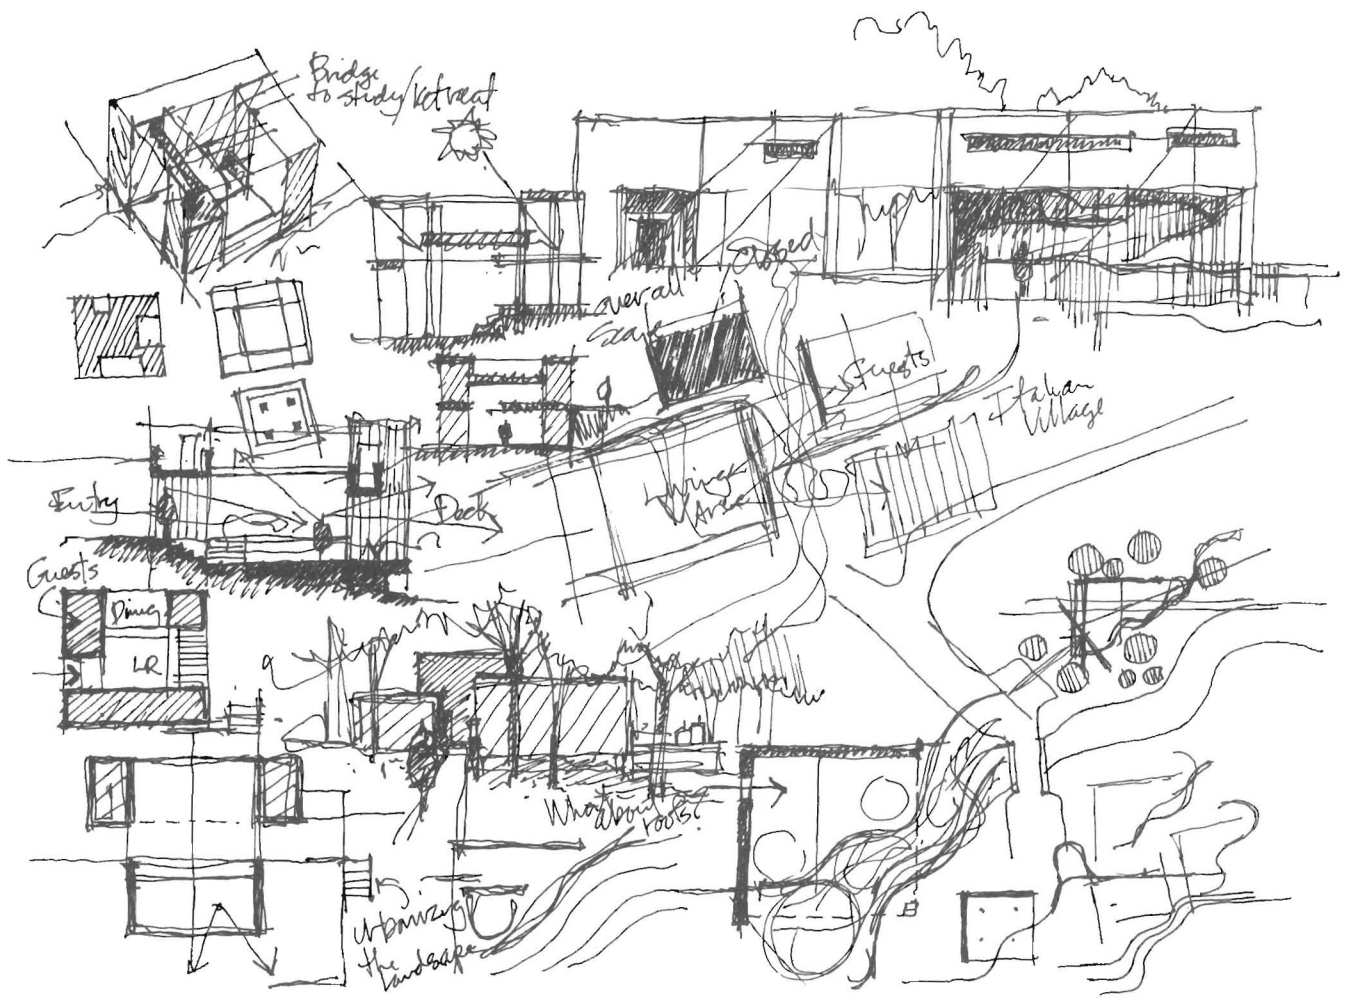 Bridge
to study/Retreat
overall
Scape
Guests
Italian
Village
Living
Area
Entry
Deck
Guests
Dining
LR
What about
roots?
Urbanizing
the
Landscape